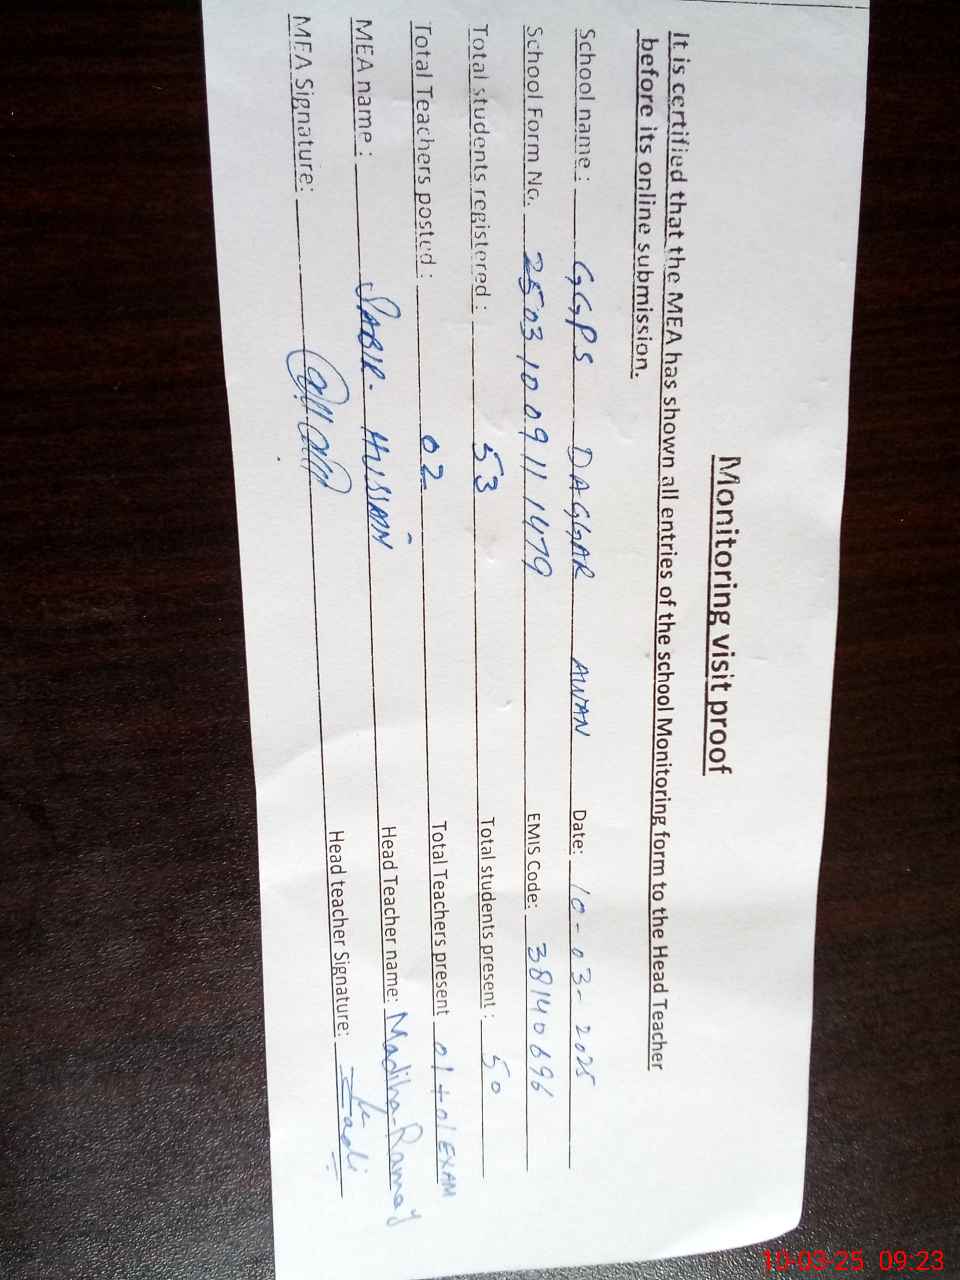 Monitoring visit proof
It is certified that the MEA has shown all entries of the school Monitoring form to the Head Teacher
before its online submission.
School name: GGPS DAGGAR AWAN Date: 10-03-2025
School Form No. 2503100911 1479 EMIS Code: 38140696
Total students registered: 53 Total students present: 50
Total Teachers posted: 02 Total Teachers present 01+01 EXAM
MEA name: SABIR HUSSAIN Head Teacher name: Madiha Ramay
MEA Signature: Head teacher Signature:
10-03-25 09:23